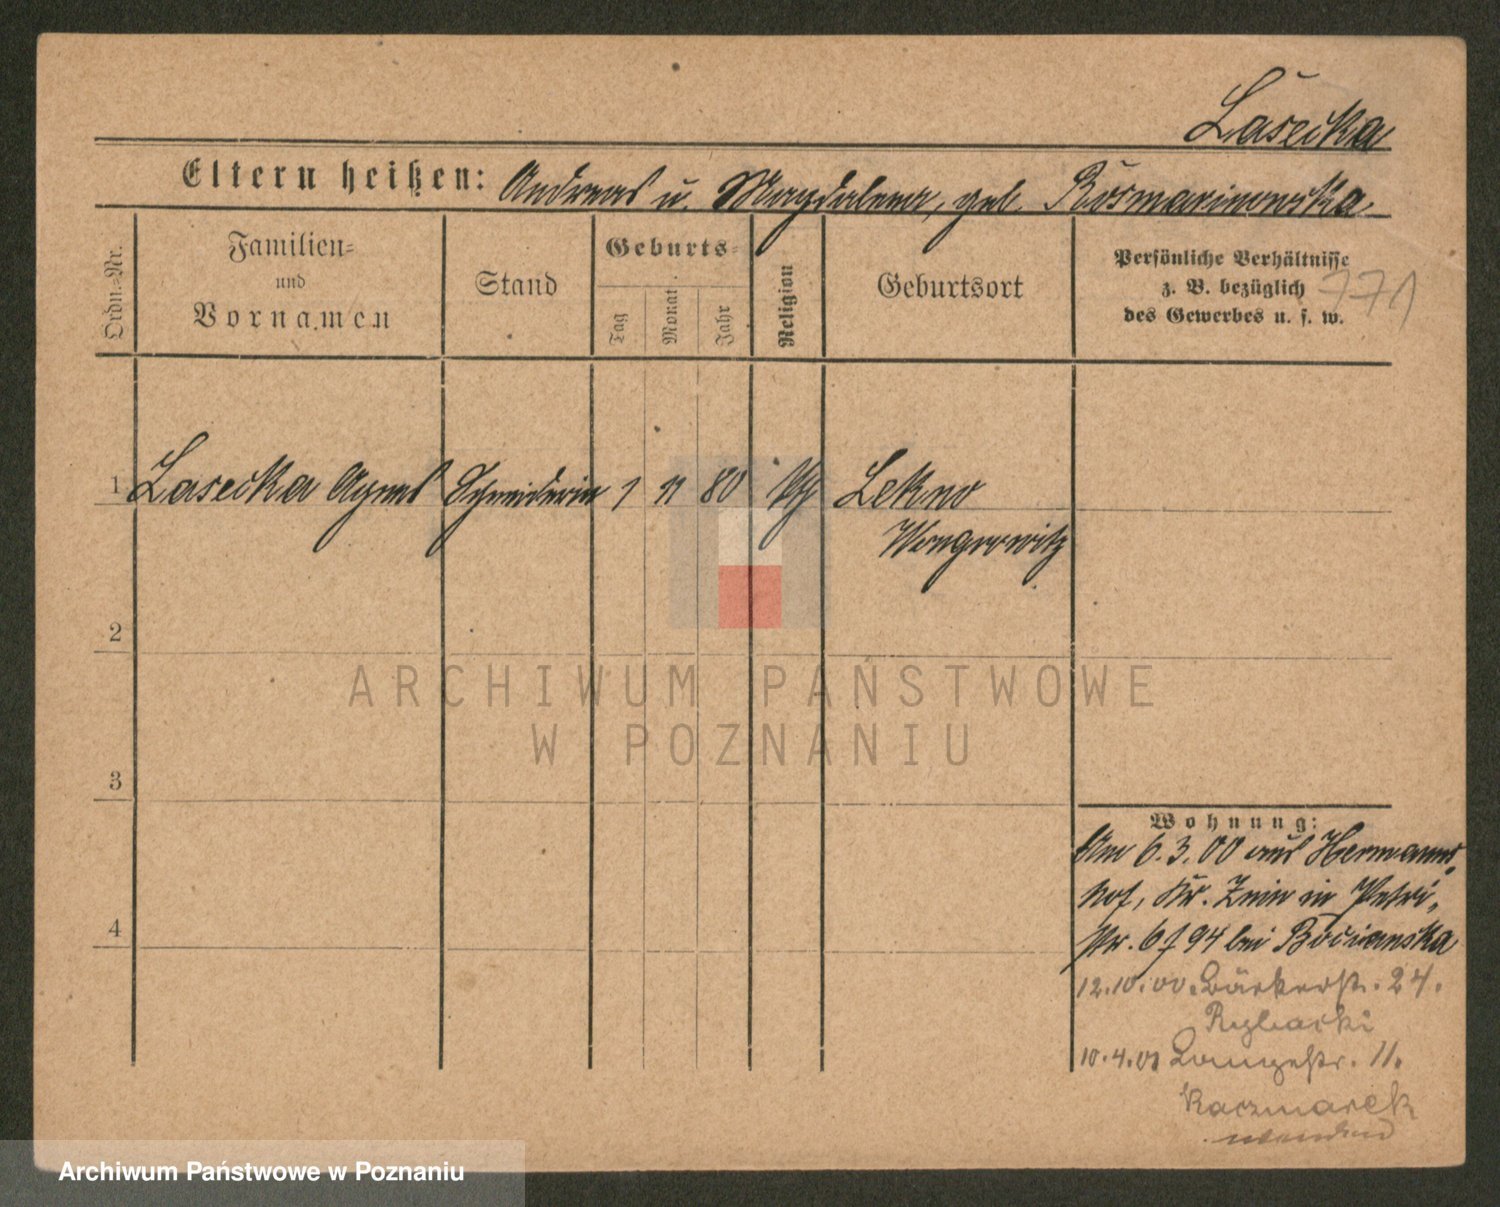 Lasecka
Eltern heißen: Andreas u. Magdalena, geb. Rosmarinowska
Ordn.-Nr.
Familien-
und
Vornamen
Stand
Geburts-
Tag
Monat
Jahr
Religion
Geburtsort
Persönliche Verhältnisse
z. B. bezüglich
des Gewerbes u. s. w.
771
1 Lasecka Agnes Schneiderin 1 11 80 Lekno
Wongrowitz
2
3
4
Wohnung:
Am 6.3.00 aus Hermanns-
hof, Kr. Znin in Petri-
94 bei Bocianska
12.10.00. Bäckerstr. 24.
Rybacki
10.4.01 Langestr. 11.
Kaczmarek
wenden
ARCHIWUM PAŃSTWOWE
W POZNANIU
Archiwum Państwowe w Poznaniu